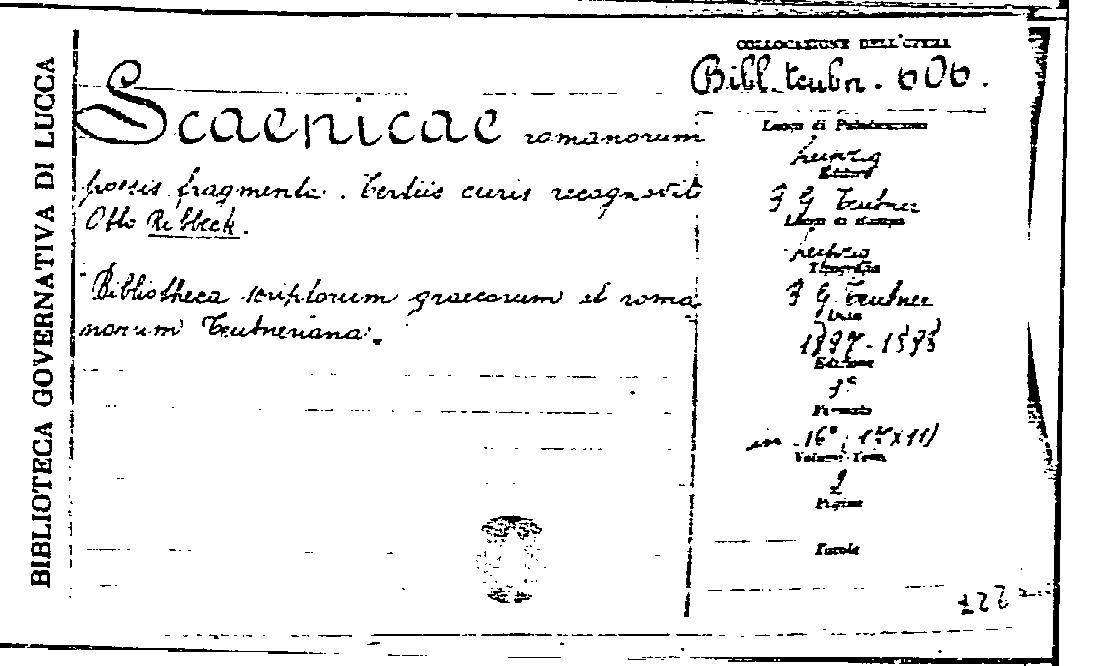 BIBLIOTECA GOVERNATIVA DI LUCCA
COLLOCAZIONE DELL'OPERA
Bibl. teubn. 606.
Scaenicae romanorum
poesis fragmenta. Tertiis curis recognovit
Otto Ribbeck.
Bibliotheca scriptorum graecorum et roma
norum Teubneriana.
Luogo di Pubblicazione
Leipzig
Editore
B G Teubner
Luogo di stampa
Leipzig
Tipografia
B G Teubner
Data
Edizione
3ª
Formato
in 16°
Volumi-Tomi
2
Pagine
Tavole